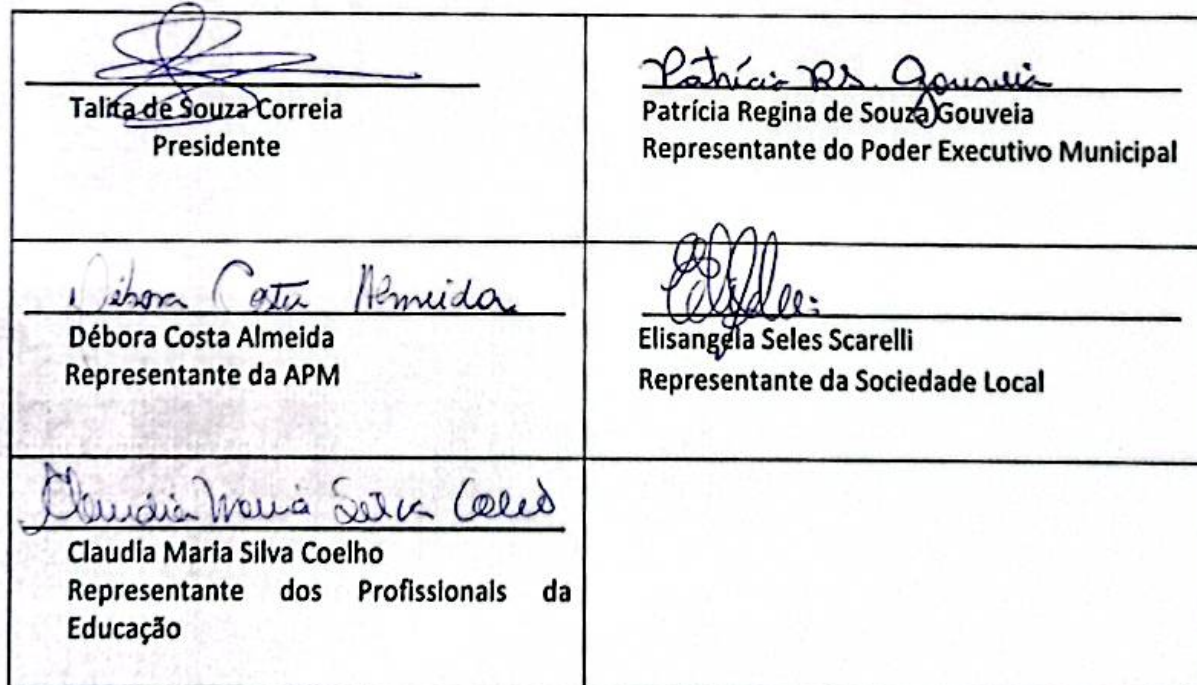 Talita de Souza Correia
Presidente
Patrícia RS. Gouveia
Patrícia Regina de Souza Gouveia
Representante do Poder Executivo Municipal
Débora Costa Almeida
Débora Costa Almeida
Representante da APM
Elisangela Seles Scarelli
Representante da Sociedade Local
Claudia Maria Silva Coelho
Claudia Maria Silva Coelho
Representante dos Profissionais da
Educação